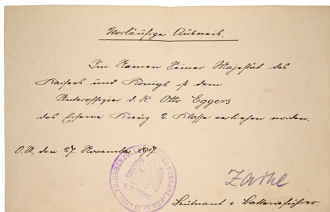 Vorläufiger Ausweis.
Im Namen Seiner Majestät des
Kaisers und Königs ist dem
Unteroffizier d. R. Otto Eggers
das Eiserne Kreuz 2. Klasse verliehen worden.
O.U., den 27. November 1917.
Leutnant u. Batterieführer.